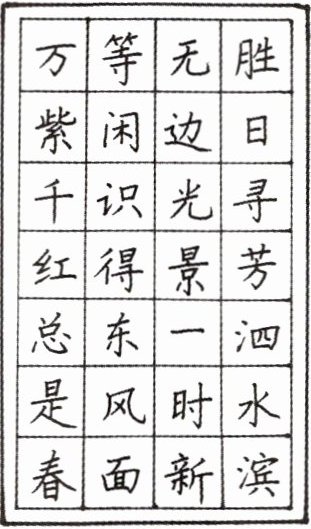 胜日寻芳泗水滨
无边光景一时新
等闲识得东风面
万紫千红总是春